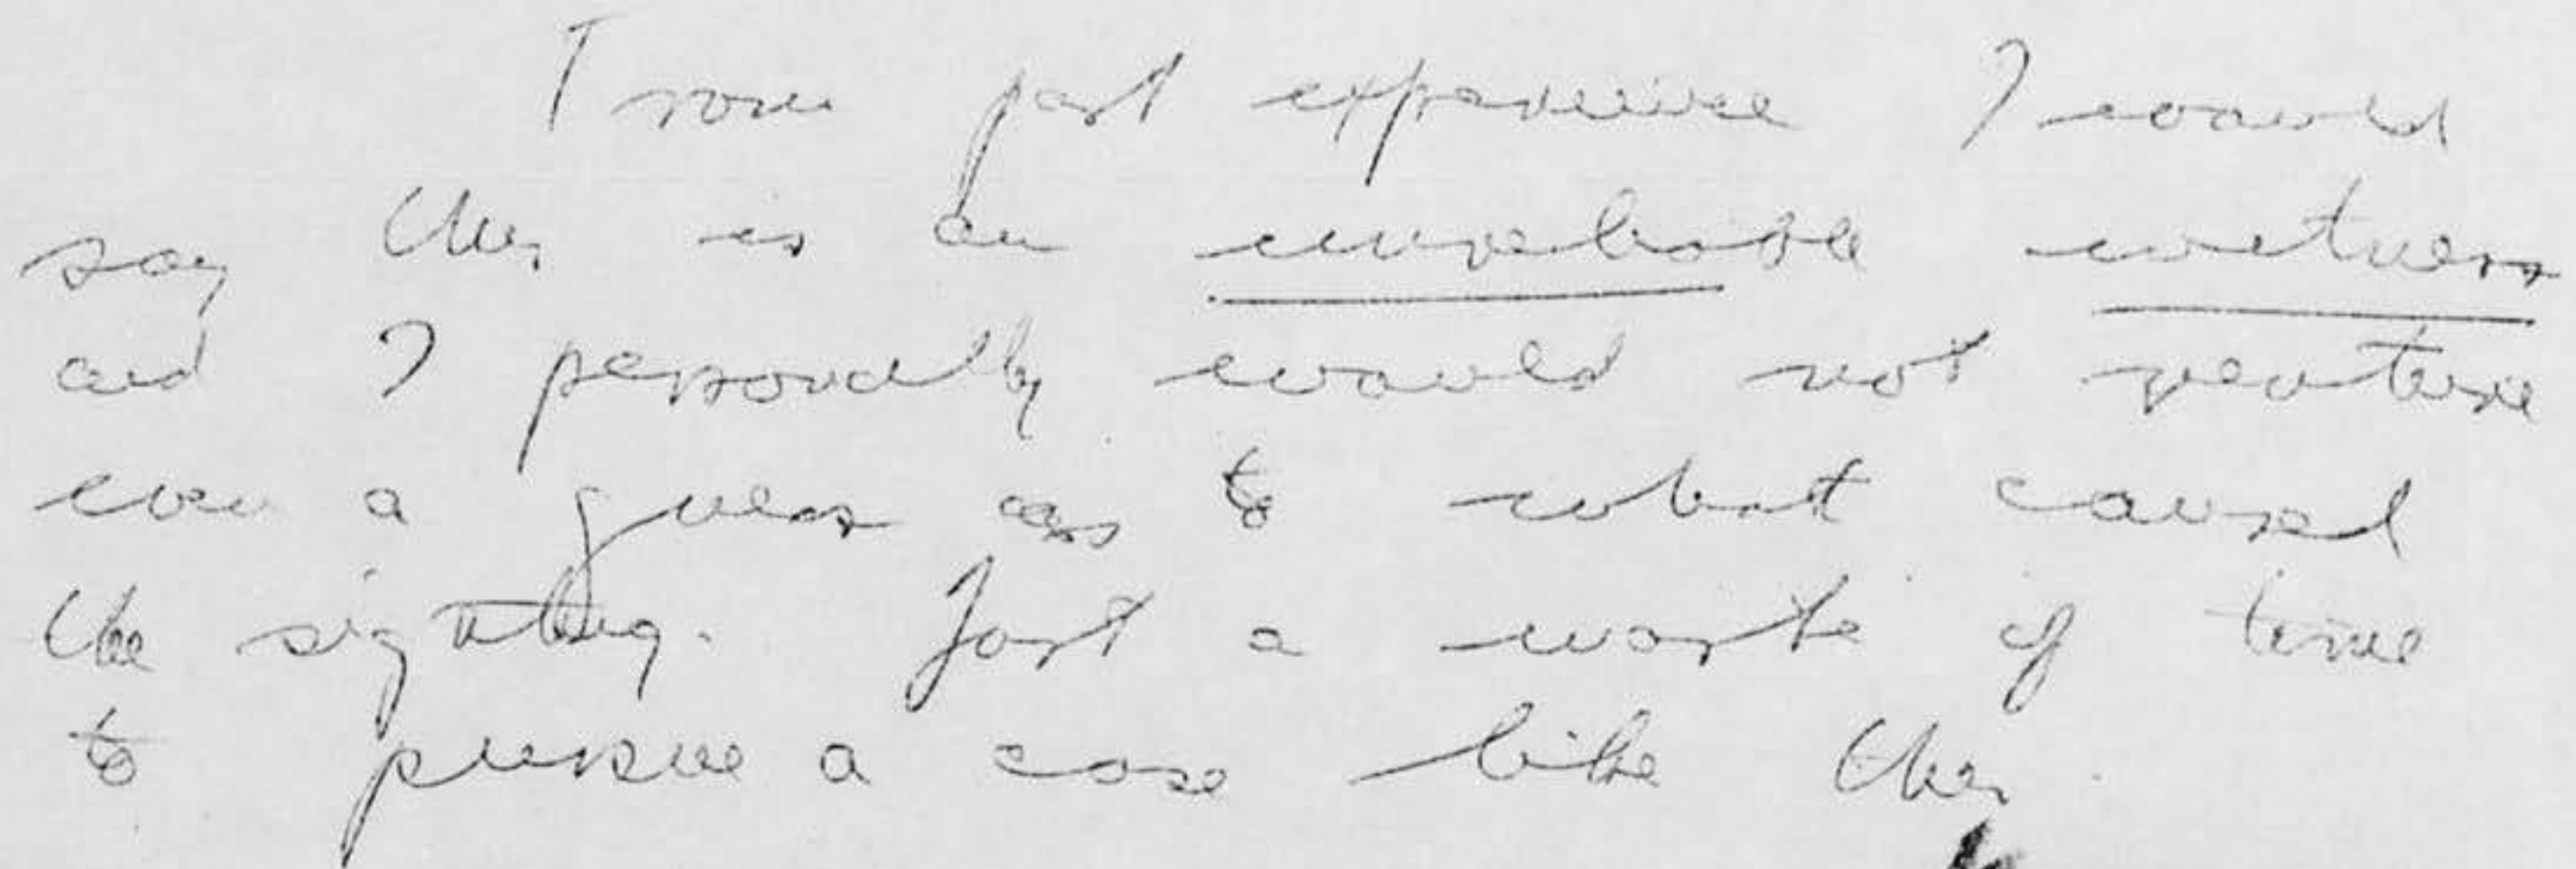 From past experience I would
say this is an unreliable witness
and I personally would not venture
even a guess as to what caused
the sighting. Just a waste of time
to pursue a case like this.